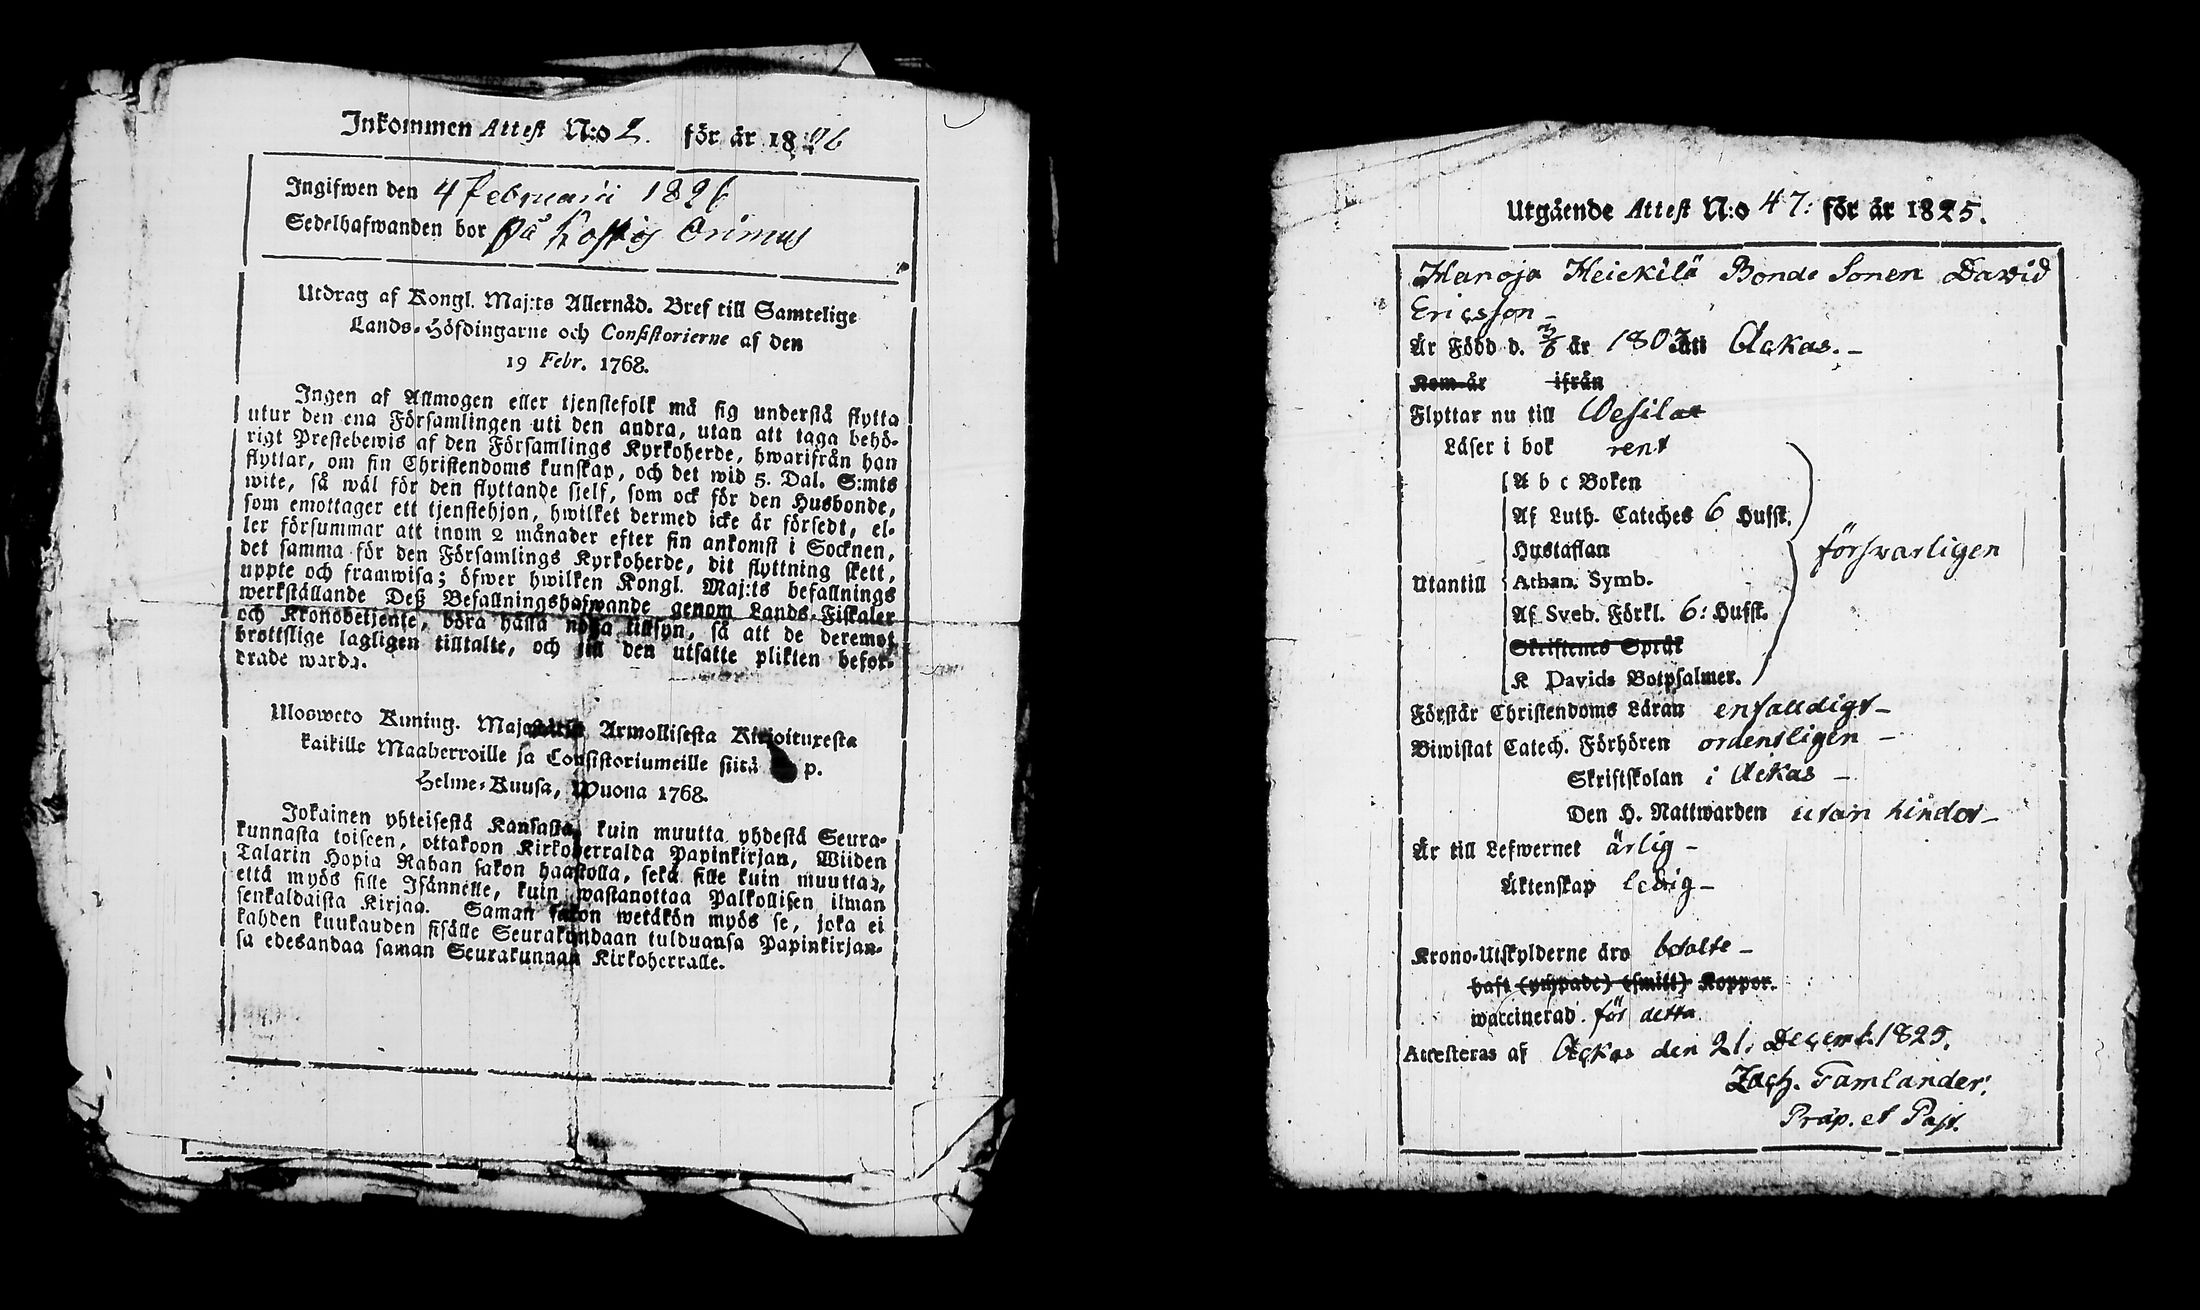 Inkommen Attest N:o 2. för år 1826
Ingifwen den 4 Februarii 1826
Sedelhafwanden bor på
Utdrag af Kongl. Maj:ts Allernåd. Bref till Samtelige
Lands-Höfdingarne och Consistorierne af den
19 Febr. 1768.
Ingen af Allmogen eller tjenstefolk må sig understå flytta
utur den ena Församlingen uti den andra, utan att taga behö-
rigt Prestebewis af den Församlings Kyrkoherde, hwarifrån han
flyttar, om sin Christendoms kunskap, och det wid 5. Dal. S:mts
wite, så wäl för den flyttande sielf, som ock för den Husbonde,
som emottager ett tjenstehjon, hwilket dermed icke är försedt, el-
ler försummar att inom 2 månader efter sin ankomst i Socknen,
det samma för den Församlings Kyrkoherde, dit flyttning skett,
uppte och framwisa; öfwer hwilken Kongl. Maj:ts befallnings
werkställande Deß Befallningshafwande genom Lands-Fiskaler
och Kronobetjente, böra hålla noga tillsyn, så att de deremot
brottslige lagligen tilltalte, och till den utsatte plikten befor-
drade warda.
Ulosweto Kuning. Majestätin Armollisesta Kirjoituxesta
kaikille Maaherroille ja Consistoriumeille siitä p.
Helme-Kuusa, Wuona 1768.
Jokainen yhteisestä Kansasta, kuin muutta yhdestä Seura-
kunnasta toiseen, ottakoon Kirkoherralda Papinkirjan, Wiiden
Talarin Hopia Rahan sakon haastolla, sekä sille kuin muuttaa,
että myös sille Isännelle, kuin wastanottaa Palkollisen ilman
senkaldaista Kirjaa. Saman sakon wetäkön myös se, joka ei
kahden kuukauden sisälle Seurakundaan tulduansa Papinkirjan-
sa edesandaa saman Seurakunnan Kirkoherralle.
Utgående Attest N:o 47: för år 1825.
Hanoja Heickilä Bonde Sonen David
Ericsson
Är Född d. år 1803 uti Ackas. –
Kom år ifrån
Flyttar nu till Wesilax
Läser i bok rent
A b c Boken
Af Luth. Cateches 6 Hufst.
Hustaflan
Utantill Athan. Symb.
Af Sveb. Förkl. 6: Hufst.
Skriftenes Språk
K Davids Botpsalmer.
försvarligen
Förstår Christendoms Läran enfalldigt –
Biwistat Catech. Förhören ordentligen –
Skriftskolan i Ackas –
Den H. Nattwarden utan hinder –
Är till Lefwernet ärlig –
Äktenskap ledig –
Krono-Utskylderne äro betalte –
haft (ympade) (smitt) Koppor.
waccinerad för detta
Attesteras af Ackas den 21. Decemb. 1825.
Zach. Tamlander.
Præp. et Past.